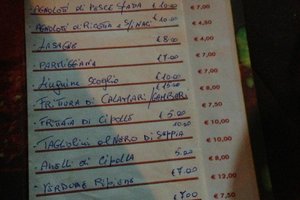 AGNOLOTI di PESCE SPADA € 10.00 € 7,00
AGNOLOTI di RICOTTA e SPINACI € 10.00 € 4,50
- LASAGNE € 8.00 € 4,00
- PARMIGGIANA € 7.00 € 7,00
- Linguine scoglio € 10.00 € 6,00
- FRITTURA DI CALAMARI/GAMBERI € 10.00 € 7,00
- FRITTATA DI CIPOLLE € 5.00 € 5,00
TAGLIOLINI al NERO DI SEPPIA 10.00 € 10,00
- Anelli di CIPOLLA 5.00 € 12,00
- VERDURE Ripiene € 7.00 € 8,00
€ 7.00 € 12,00
€ 7,50